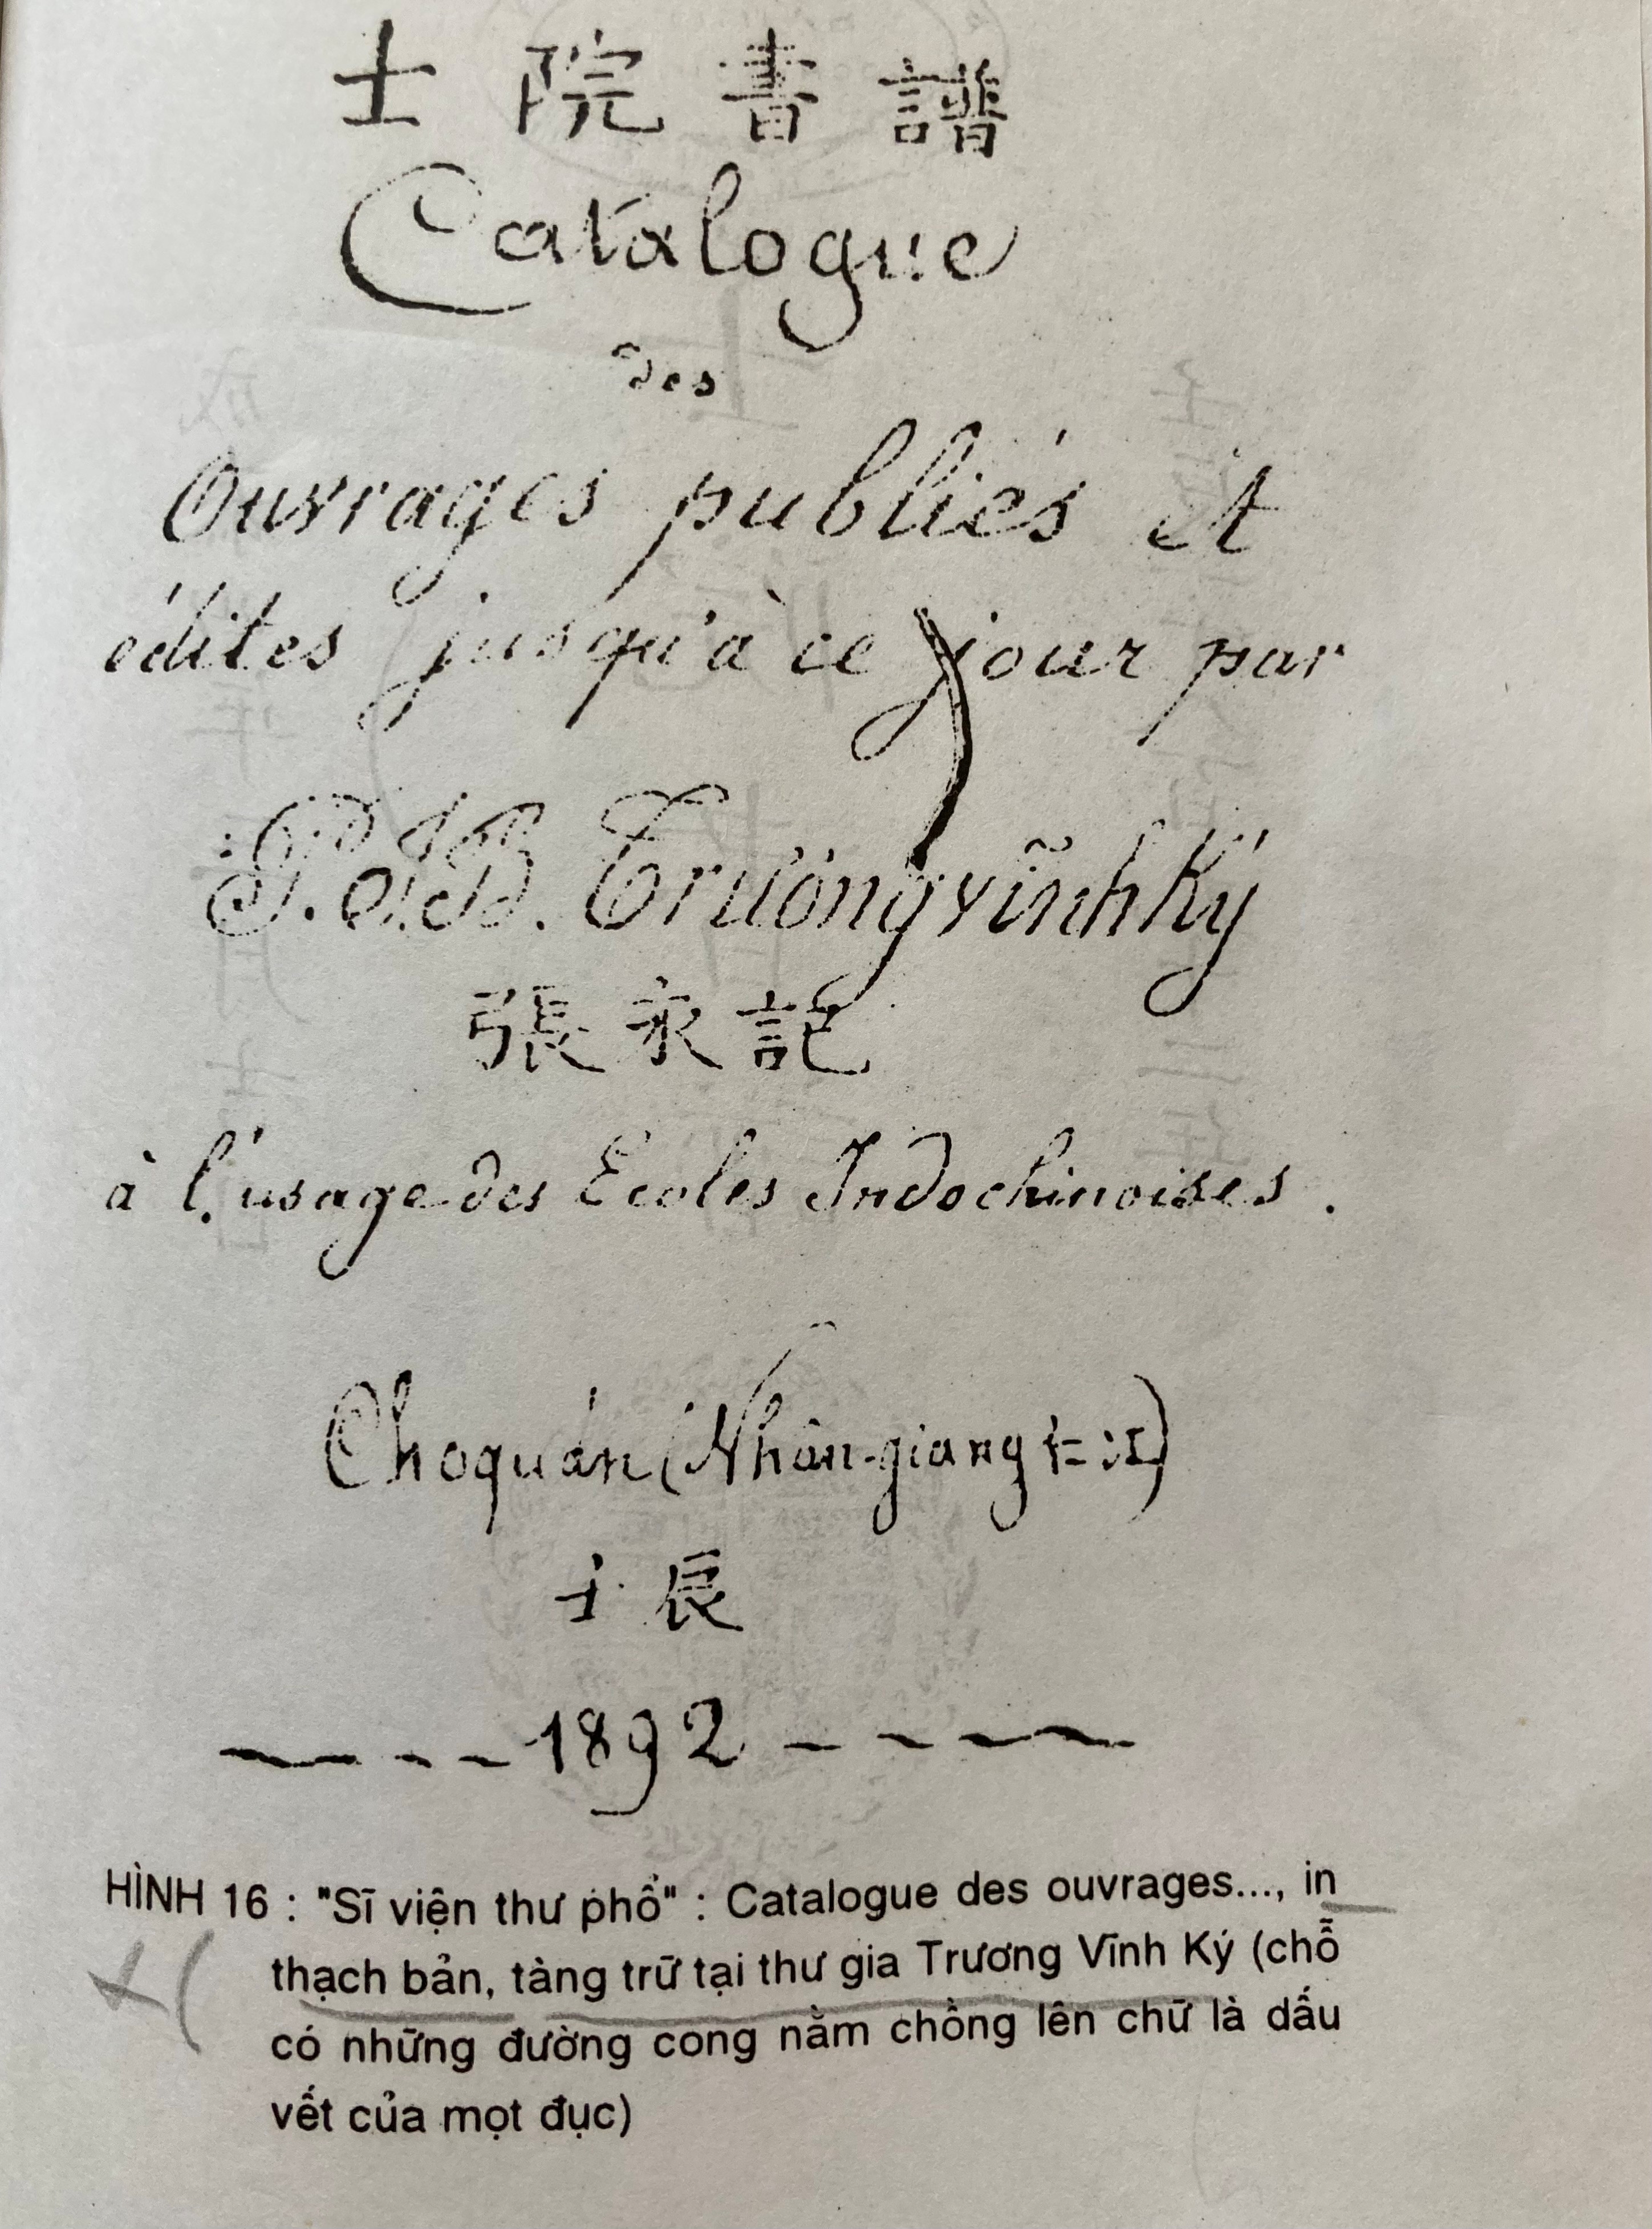 士院書譜
Catalogue
des
Ouvrages publiés et
édités jusqu'à ce jour par
P. J. B. Trương vĩnh Ký
張永記
à l'usage des Ecoles Indochinoises.
Choquán (Nhân-giang 仁江)
壬辰
1892
HÌNH 16 : "Sĩ viện thư phổ" : Catalogue des ouvrages..., in
thạch bản, tàng trữ tại thư gia Trương Vĩnh Ký (chỗ
có những đường cong nằm chồng lên chữ là dấu
vết của mọt đục)